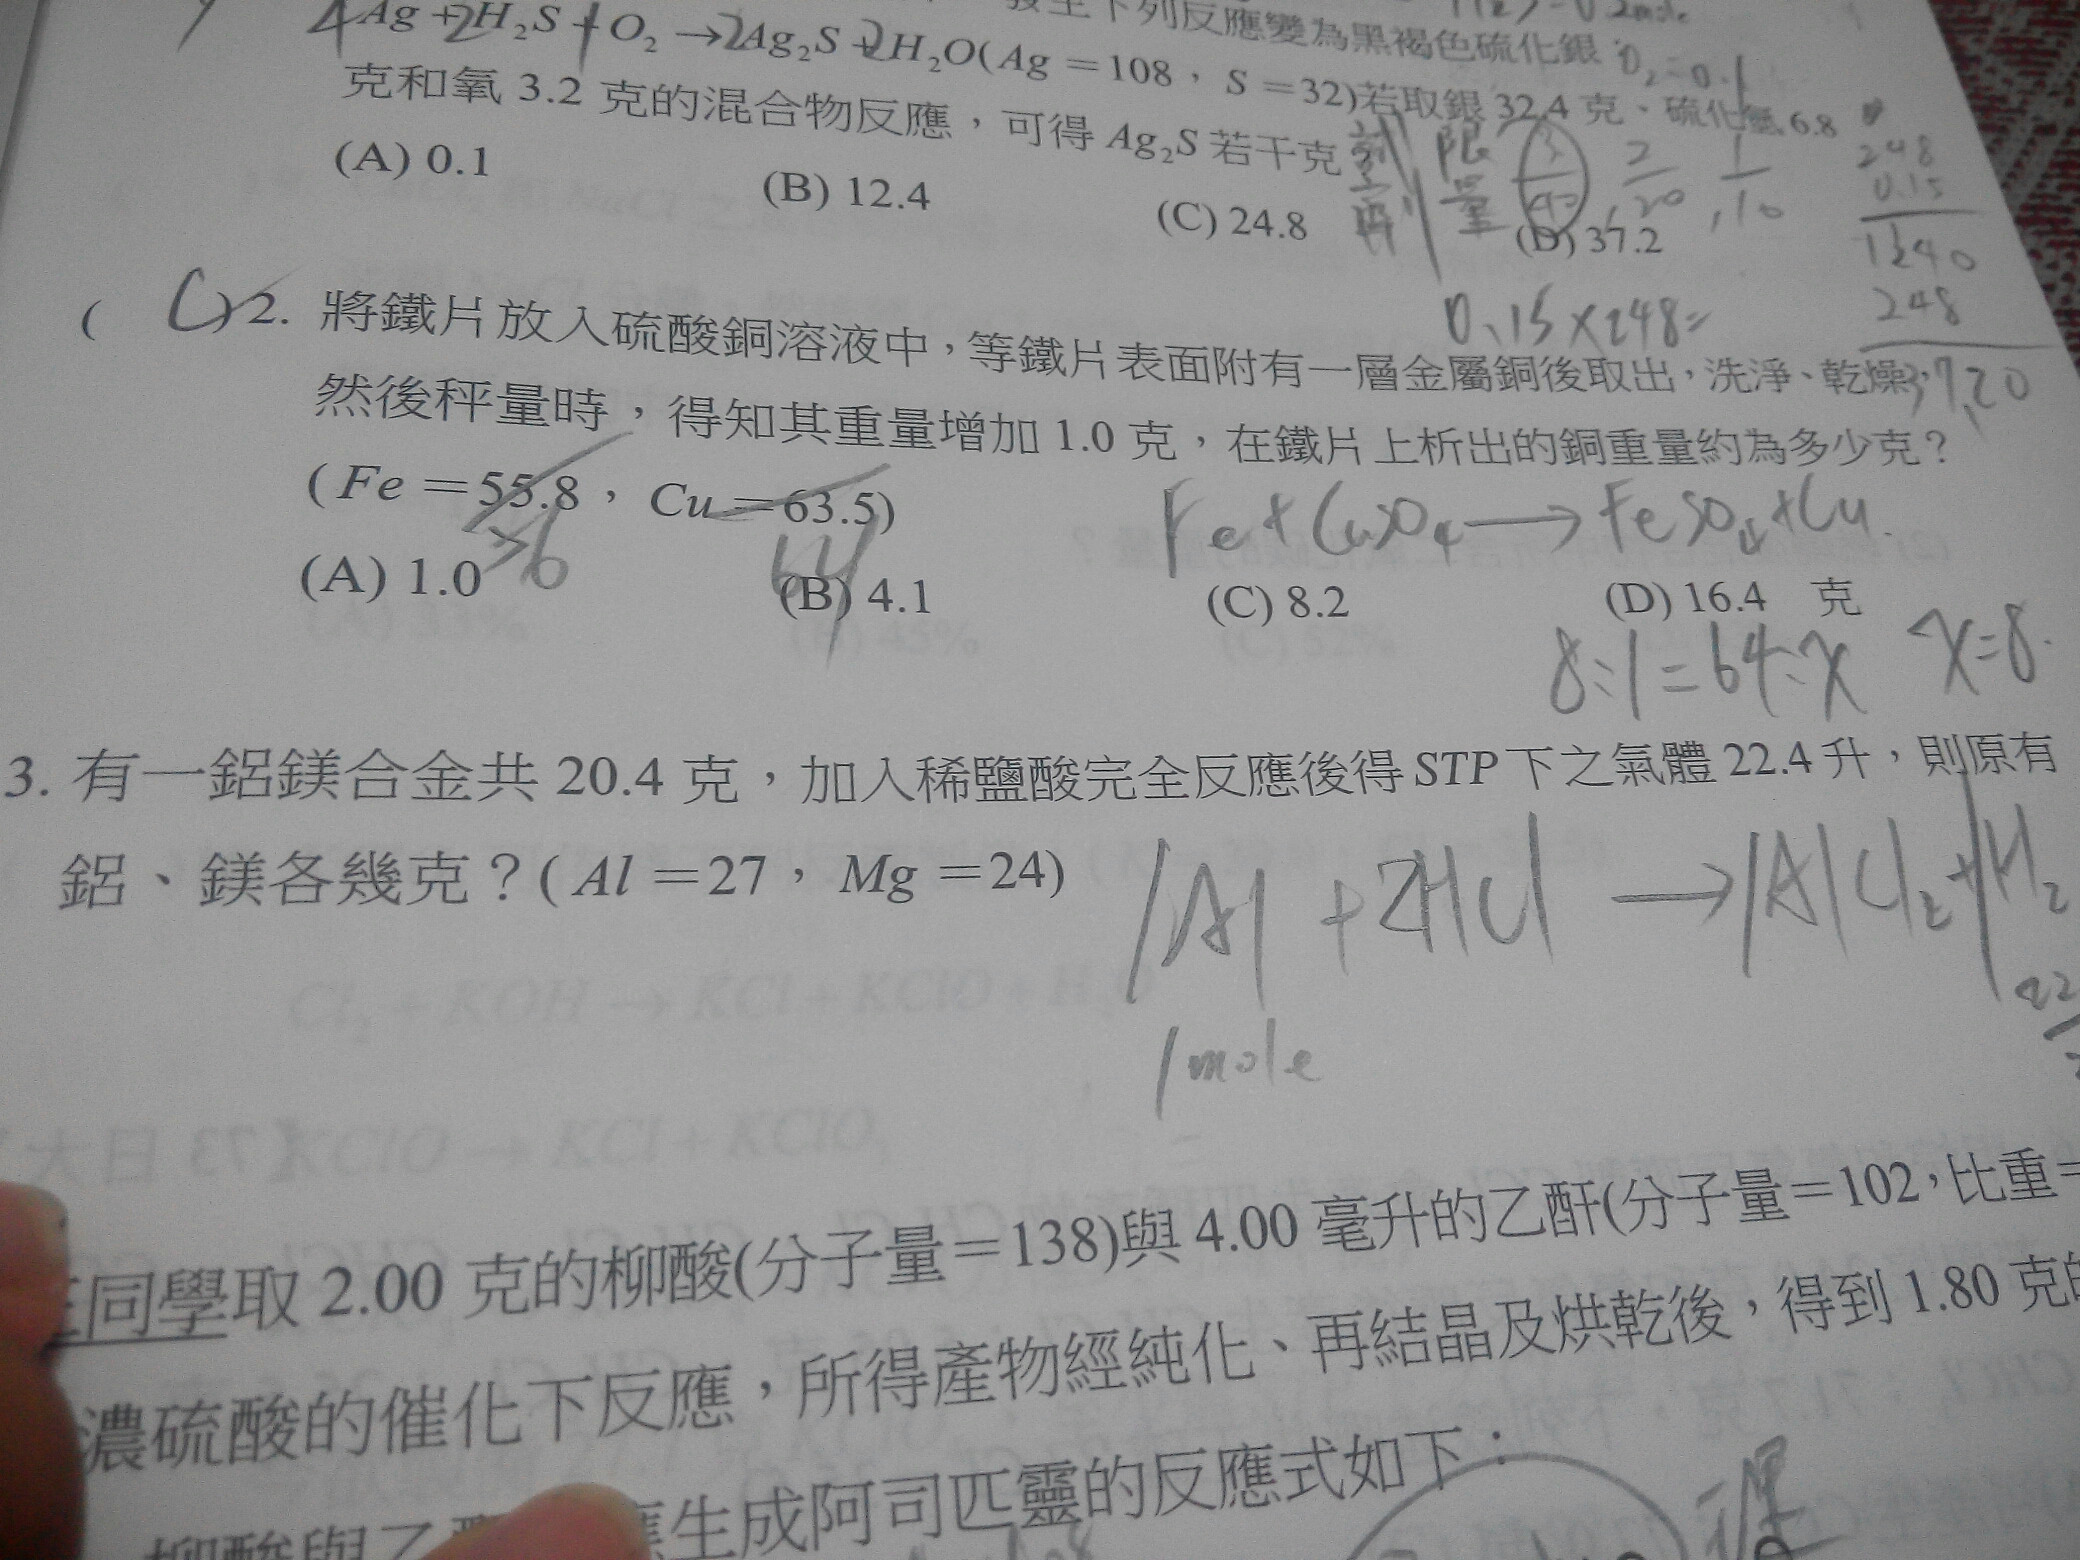 發生下列反應變為黑褐色硫化銀
4Ag+2H₂S+1O₂→2Ag₂S+2H₂O(Ag=108,S=32)若取銀 32.4 克、硫化氫 6.8
O₂=0.1
克和氧 3.2 克的混合物反應,可得 Ag₂S 若干克
限量
(A) 0.1 (B) 12.4 (C) 24.8 (D) 37.2
248
0.15
1240
248
37.20
0.15×248=
( C )2. 將鐵片放入硫酸銅溶液中,等鐵片表面附有一層金屬銅後取出,洗淨、乾燥,
然後秤量時,得知其重量增加 1.0 克,在鐵片上析出的銅重量約為多少克?
(Fe=55.8,Cu=63.5)
56 64
Fe+CuSO₄→FeSO₄+Cu
(A) 1.0 (B) 4.1 (C) 8.2 (D) 16.4 克
8:1=64:x x=8.
3. 有一鋁鎂合金共 20.4 克,加入稀鹽酸完全反應後得 STP 下之氣體 22.4 升,則原有
鋁、鎂各幾克?(Al=27,Mg=24)
1Al+2HCl→1AlCl₂+1H₂
1mole
同學取 2.00 克的柳酸(分子量=138)與 4.00 毫升的乙酐(分子量=102,比重=
濃硫酸的催化下反應,所得產物經純化、再結晶及烘乾後,得到 1.80 克的
生成阿司匹靈的反應式如下: